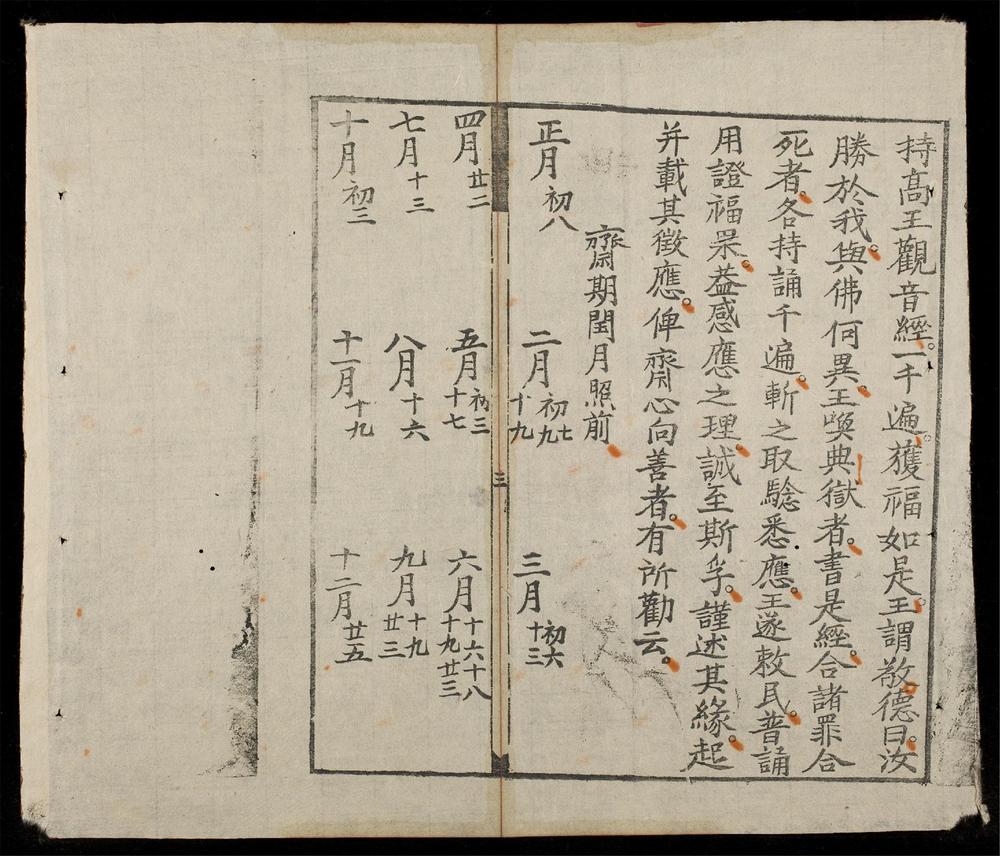 持高王觀音經。一千遍。獲福如是。王謂敬德曰。汝
勝於我。與佛何異。王喚典獄者。書是經。合諸罪合
死者。各持誦千遍。斬之取驗悉應。王遂敕民。普誦
用證福杲。葢感應之理。誠至斯孚。謹述其緣。起
并載其徵應。俾齋心向善者。有所勸云。
齋期閏月照前
正月初八
二月初九十九
三月初六十三
三
四月廿二
五月初三十七
六月十六十八十九廿三
七月十三
八月十六
九月十九廿三
十月初三
十一月十九
十二月廿五